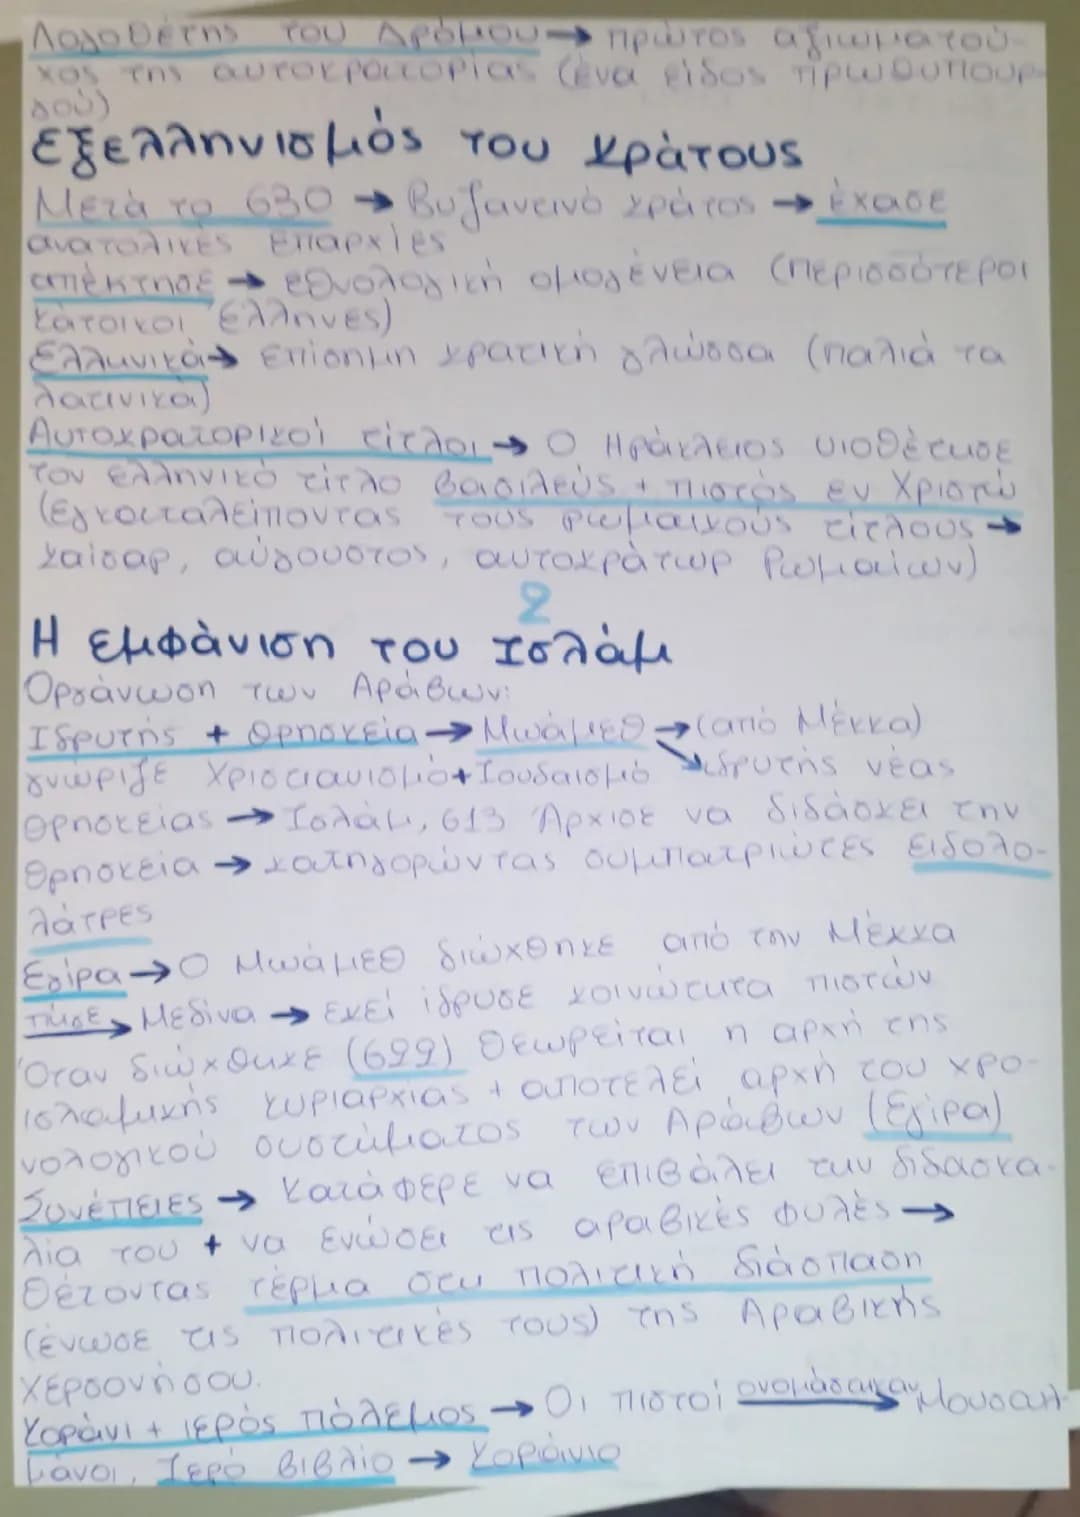 Λογοθέτης του Δρόμου → πρώτος αξιωματού-
χος της αυτοκρατορίας (ένα είδος πρωθυπουρ-
γού)
Εξελληνισμός του κράτους
Μετά το 630 → Βυζαντινό κράτος → έχασε
ανατολικές επαρχίες
απέκτησε → εθνολογική ομογένεια (περισσότεροι
κάτοικοι Έλληνες)
Ελληνικά → επίσημη κρατική γλώσσα (παλιά τα
λατινικά)
Αυτοκρατορικοί τίτλοι → Ο Ηράκλειος υιοθέτησε
τον ελληνικό τίτλο βασιλεύς + πιστός εν Χριστώ
(εγκαταλείποντας τους ρωμαικούς τίτλους →
καίσαρ, αύγουστος, αυτοκράτωρ Ρωμαίων)
2
Η εμφάνιση του Ισλάμ
Οργάνωση των Αράβων:
Ιδρυτής + Θρησκεία → Μωάμεθ → (από Μέκκα)
γνώριζε Χριστιανισμό + Ιουδαισμό ↘ ιδρυτής νέας
θρησκείας → Ισλάμ, 613 Άρχισε να διδάσκει την
θρησκεία → κατηγορώντας συμπατριώτες ειδολο-
λάτρες
Εγίρα → Ο Μωάμεθ διώχθηκε από την Μέκκα
πήγε → Μεδίνα → εκεί ίδρυσε κοινώτητα πιστών
Όταν διώχθηκε (622) θεωρείται η αρχή της
ισλαμικής κυριαρχίας + αποτελεί αρχή του χρο-
νολογικού συστήματος των Αράβων (Εγίρα)
Συνέπειες → Κατάφερε να επιβάλει την διδασκα-
λία του + να ενώσει τις αραβικές φυλές →
θέτοντας τέρμα στη πολιτική διάσπαση
(ένωσε τις πολιτικές τους) της Αραβικής
χερσονήσου.
Κοράνι + ιερός πόλεμος → Οι πιστοί ονομάστηκαν → Μουσουλ-
μάνοι, Ιερό βιβλίο → Κοράνιο